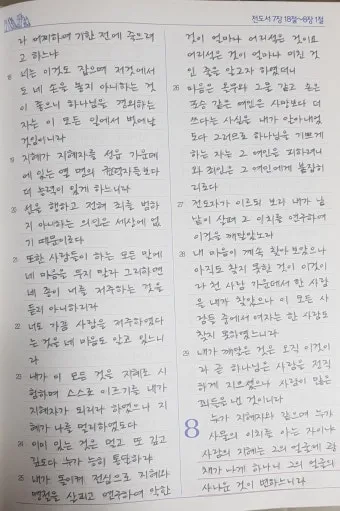 전도서 7장 18절~8장 1절
라 어찌하여 기한 전에 죽으려
고 하느냐
18 너는 이것도 잡으며 저것에서
도 네 손을 놓지 아니하는 것
이 좋으니 하나님을 경외하는
자는 이 모든 일에서 벗어날
것임이니라
19 지혜가 지혜자를 성읍 가운데
에 있는 열 명의 권력자들보다
더 능력이 있게 하느니라
20 선을 행하고 전혀 죄를 범하
지 아니하는 의인은 세상에 없
기 때문이로다
21 또한 사람들이 하는 모든 말에
네 마음을 두지 말라 그리하면
네 종이 너를 저주하는 것을
듣지 아니하리라
22 너도 가끔 사람을 저주하였다
는 것을 네 마음도 알고 있느니
라
23 내가 이 모든 것을 지혜로 시
험하며 스스로 이르기를 내가
지혜자가 되리라 하였으나 지
혜가 나를 멀리하였도다
24 이미 있는 것은 멀고 또 깊고
깊도다 누가 능히 통달하랴
25 내가 돌이켜 전심으로 지혜와
명철을 살피고 연구하여 악한
것이 얼마나 어리석은 것이요
어리석은 것이 얼마나 미친 것
인 줄을 알고자 하였더니
26 마음은 올무와 그물 같고 손은
포승 같은 여인은 사망보다 더
쓰다는 사실을 내가 알아내었
도다 그러므로 하나님을 기쁘게
하는 자는 그 여인을 피하려니
와 죄인은 그 여인에게 붙잡히
리로다
27 전도자가 이르되 보라 내가 낱
낱이 살펴 그 이치를 연구하여
이것을 깨달았노라
28 내 마음이 계속 찾아 보았으나
아직도 찾지 못한 것이 이것이
라 천 사람 가운데서 한 사람
을 내가 찾았으나 이 모든 사
람들 중에서 여자는 한 사람도
찾지 못하였느니라
29 내가 깨달은 것은 오직 이것이
라 곧 하나님은 사람을 정직
하게 지으셨으나 사람이 많은
꾀들을 낸 것이니라
8 누가 지혜자와 같으며 누가
사물의 이치를 아는 자이냐
사람의 지혜는 그의 얼굴에 광
채가 나게 하나니 그의 얼굴의
사나운 것이 변하느니라